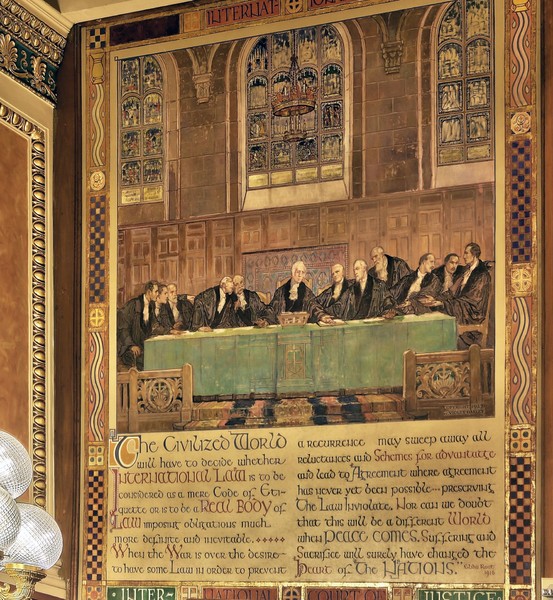 INTERNAT
The Civilized World
will have to decide whether
International Law is to be
considered as a mere Code of Eti-
quette or is to be a Real Body of
Law imposing obligations much
more definite and inevitable.
When the War is over the desire-
to have some Law in order to prevent
a recurrence may sweep away all
reluctances and Schemes for advantage
and lead to Agreement where agreement
has never yet been possible—preserving
The Law Inviolate. Nor can we doubt
that this will be a different World
when Peace comes. Suffering and
Sacrifice will surely have changed the
Heart of The Nations."
Elihu Root
1916
INTER-NATIONAL COURT OF JUSTICE